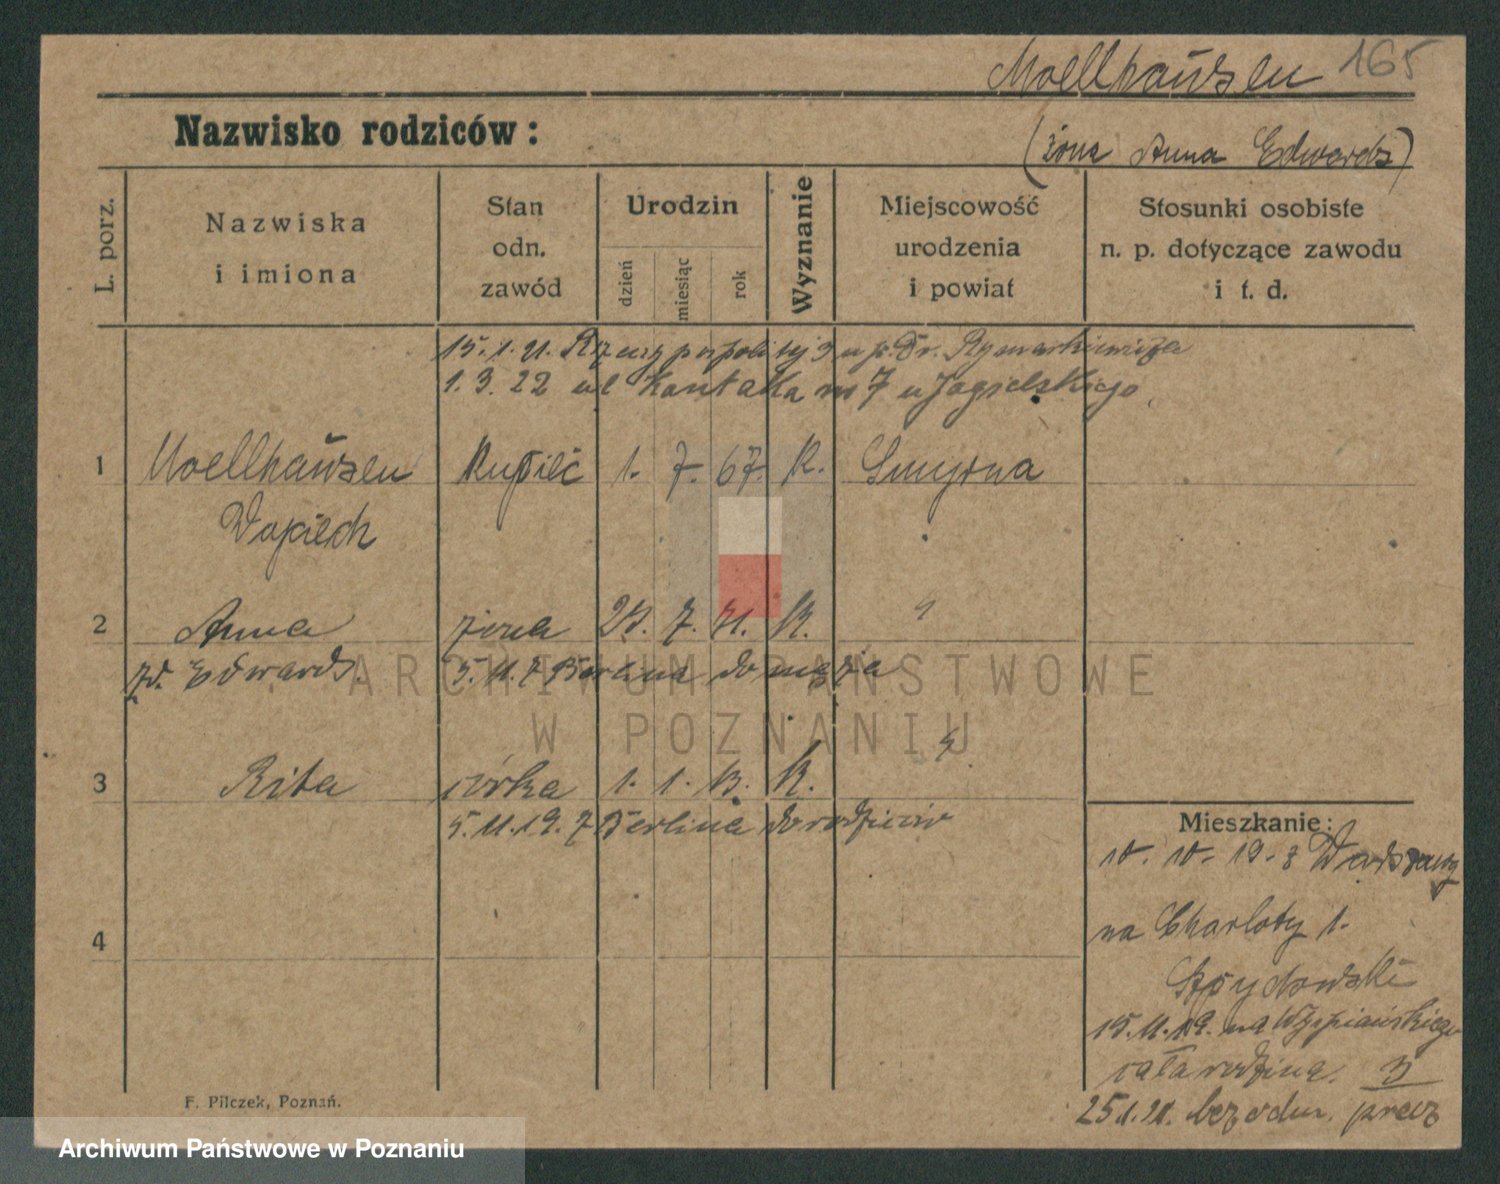 Moellhausen 165
Nazwisko rodziców:
(żona Anna Edwards)
L. porz.
Nazwiska
i imiona
Stan
odn.
zawód
Urodzin
dzień
miesiąc
rok
Wyznanie
Miejscowość
urodzenia
i powiat
Stosunki osobiste
n. p. dotyczące zawodu
i t. d.
15.1.21. Rzeczypospolitej 3 u p. Dr. Rymarkiewicza
1.3.22 ul Kantaka nr 7 u Jagielskiego
1 Moellhausen Kupiec 1. 7. 67. K. Smyrna
Wojciech
2 Anna żona 7. 71. K.
zd. Edwards. z Berlina do męża
3 Rita córka 1. 1. 13. K.
5.11.19. z Berlina do rodziców
4
Mieszkanie:
10.10.19. z Warszawy
na Charloty 1.
Szpydowski
15.11.19. na Wyspiańskiego
cała rodzina.
25.1.21. bez odm. precz
F. Pilczek, Poznań.
ARCHIWUM PAŃSTWOWE
W POZNANIU
Archiwum Państwowe w Poznaniu